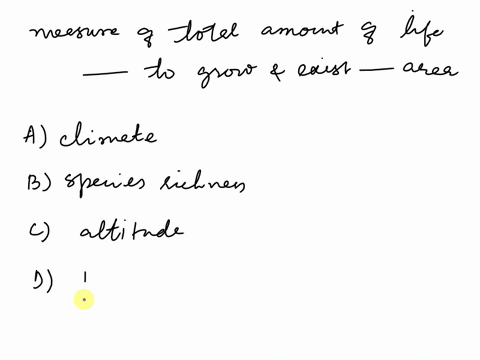 measure of total amount of life
— to grow & exist — area
A) climate
B) species richness
C) altitude
D)